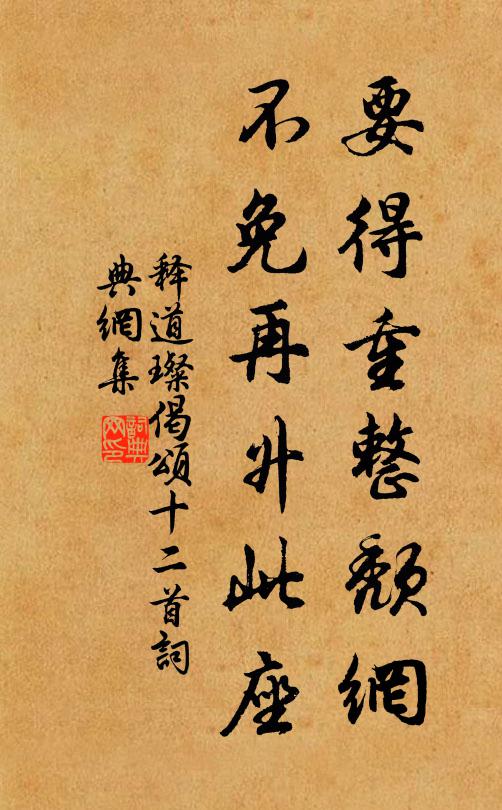 要得重整颓網
不免再升此座
释道璨偈頌十二首詞
典網集
詞典網印